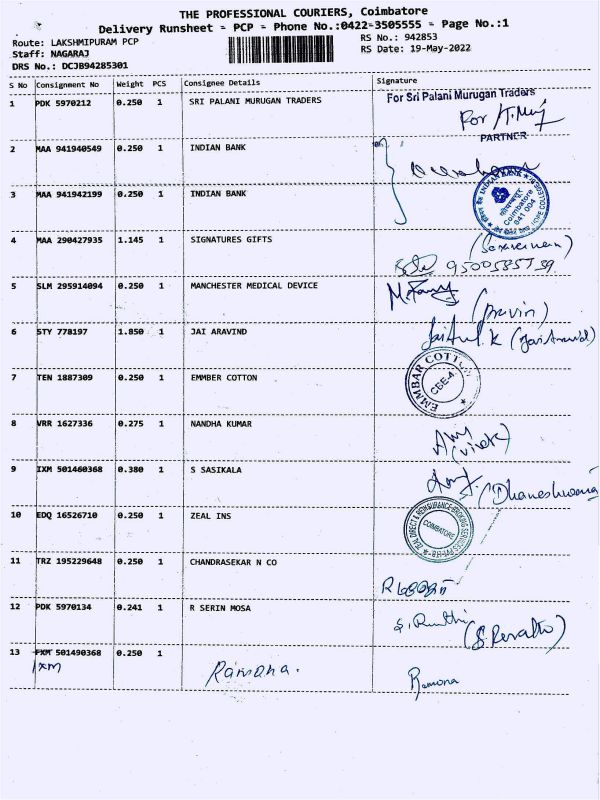 THE PROFESSIONAL COURIERS, Coimbatore
Delivery Runsheet = PCP = Phone No.:0422-3505555 = Page No.:1
Route: LAKSHMIPURAM PCP
Staff: NAGARAJ
DRS No.: DCJB94285301
RS No.: 942853
RS Date: 19-May-2022
S No Consignment No Weight PCS Consignee Details Signature
1 PDK 5970212 0.250 1 SRI PALANI MURUGAN TRADERS
For Sri Palani Murugan Traders
For
PARTNER
2 MAA 941940549 0.250 1 INDIAN BANK
3 MAA 941942199 0.250 1 INDIAN BANK
INDIAN BANK
Coimbatore
641 004
4 MAA 290427935 1.145 1 SIGNATURES GIFTS
(Saravanan)
5 SLM 295914094 0.250 1 MANCHESTER MEDICAL DEVICE
(Pravin)
6 STY 778197 1.850 1 JAI ARAVIND
7 TEN 1887309 0.250 1 EMMBER COTTON
EMMBAR COTTON
CBE-4
8 VRR 1627336 0.275 1 NANDHA KUMAR
(Vivek)
9 IXM 501460368 0.380 1 S SASIKALA
10 EDQ 16526710 0.250 1 ZEAL INS
ZEAL DIRECT & REINSURANCE BROKING SERVICES PVT LTD
COIMBATORE
11 TRZ 195229648 0.250 1 CHANDRASEKAR N CO
12 PDK 5970134 0.241 1 R SERIN MOSA
(S. Revathi)
13 FXM 501490368 0.250 1
Ixm
Ramana.
Ramona